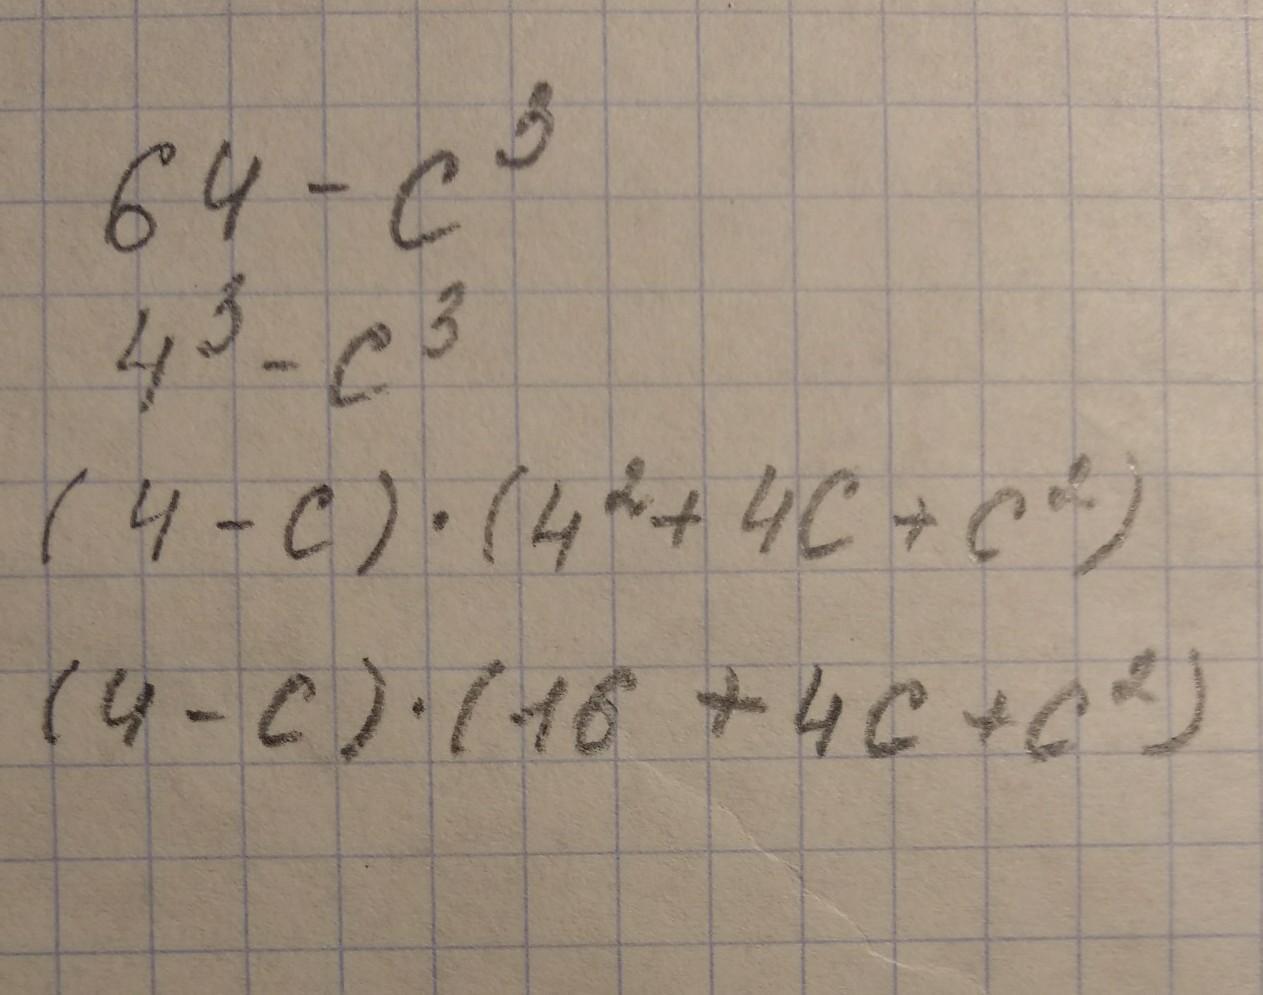 64 - c³
4³ - c³
(4 - c) · (4² + 4c + c²)
(4 - c) · (16 + 4c + c²)